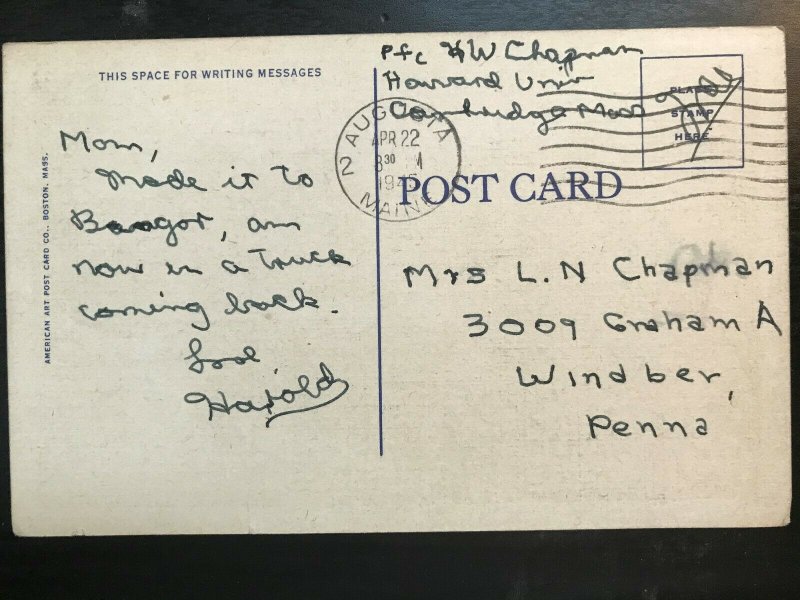 THIS SPACE FOR WRITING MESSAGES
Mom,
Made it to
Bangor, am
now in a truck
coming back.
Love
Harold
AMERICAN ART POST CARD CO., BOSTON, MASS.
Pfc HW Chapman
Harvard Univ
Cambridge Mass
AUGUSTA
2
APR 22
8 30 M
MAINE
PLACE
STAMP
HERE
Free
POST CARD
Mrs L.N Chapman
3009 Graham A
Windber,
Penna